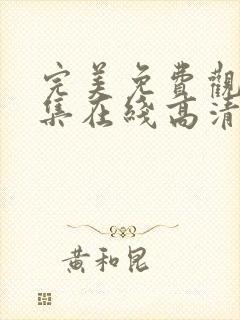 完美免費觀
集在綫高清
黃和昆